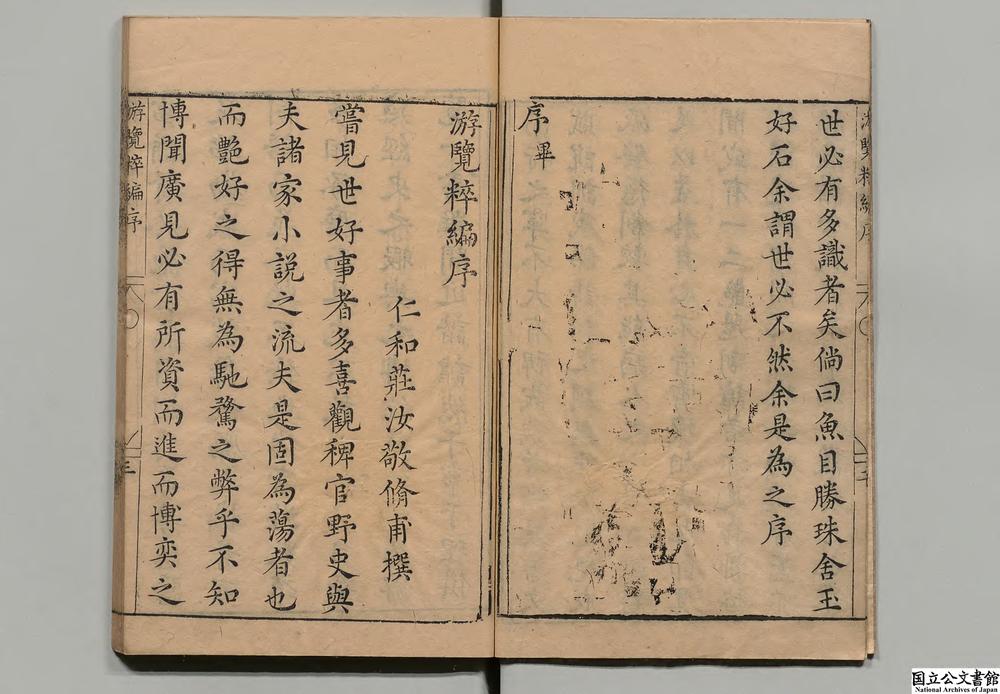 世必有多識者矣倘曰魚目勝珠舍玉
好石余謂世必不然余是為之序
序畢
游覽粹編序
仁和莊汝敬脩甫撰
嘗見世好事者多喜觀稗官野史與
夫諸家小説之流夫是固為蕩者也
而艷好之得無為馳騖之弊乎不知
博聞廣見必有所資而進而博奕之
游覽粹編序
三
国立公文書館
National Archives of Japan